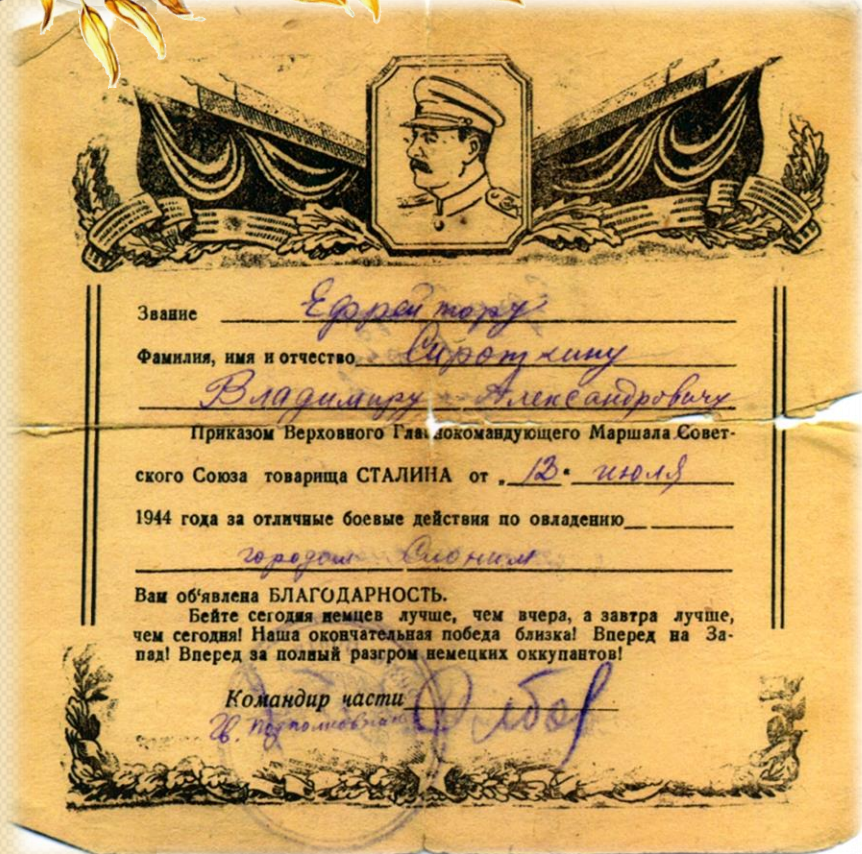 Звание Ефрейтору
Фамилия, имя и отчество Сироткину
Владимиру Александровичу
Приказом Верховного Главнокомандующего Маршала Совет-
ского Союза товарища СТАЛИНА от „13“ июля
1944 года за отличные боевые действия по овладению
городом Слоним
Вам об'явлена БЛАГОДАРНОСТЬ.
Бейте сегодня немцев лучше, чем вчера, а завтра лучше,
чем сегодня! Наша окончательная победа близка! Вперед на За-
пад! Вперед за полный разгром немецких оккупантов!
Командир части
Гв. Подполковник